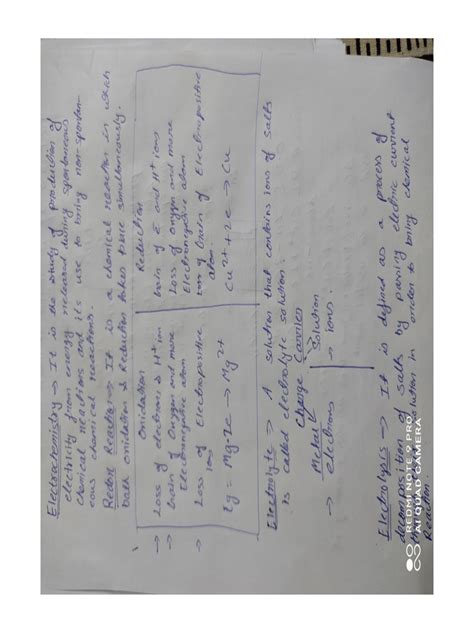 Electrochemistry → It is the study of production of
electricity from energy released during spontaneous
chemical reactions and its use to bring non-spontan-
eous chemical reactions.
Redox Reactio → It is a chemical reaction in which
both oxidation & Reduction takes place simultaneously.
Oxidation
→ Loss of electrons & H+ ion
→ Gain of Oxygen and more
Electronegative atom
→ Loss of Electropositive
ions
Eg = Mg-2e → Mg2+
Reduction
Gain of E and H+ ions
Loss of Oxygen and more
Electronegative atom
Gain of Electropositive
atom.
Cu2+ + 2e → Cu
Electrolyte → A solution that contains ions of salts
is called electrolyte solution.
Charge Carries
Metal
Solution
→ electrons
→ ions.
Electrolysis → It is defined as a process of
decomposition of salts by passing electric current
solution in order to bring chemical
Reaction
REDMI NOTE 9 PRO
AI QUAD CAMERA